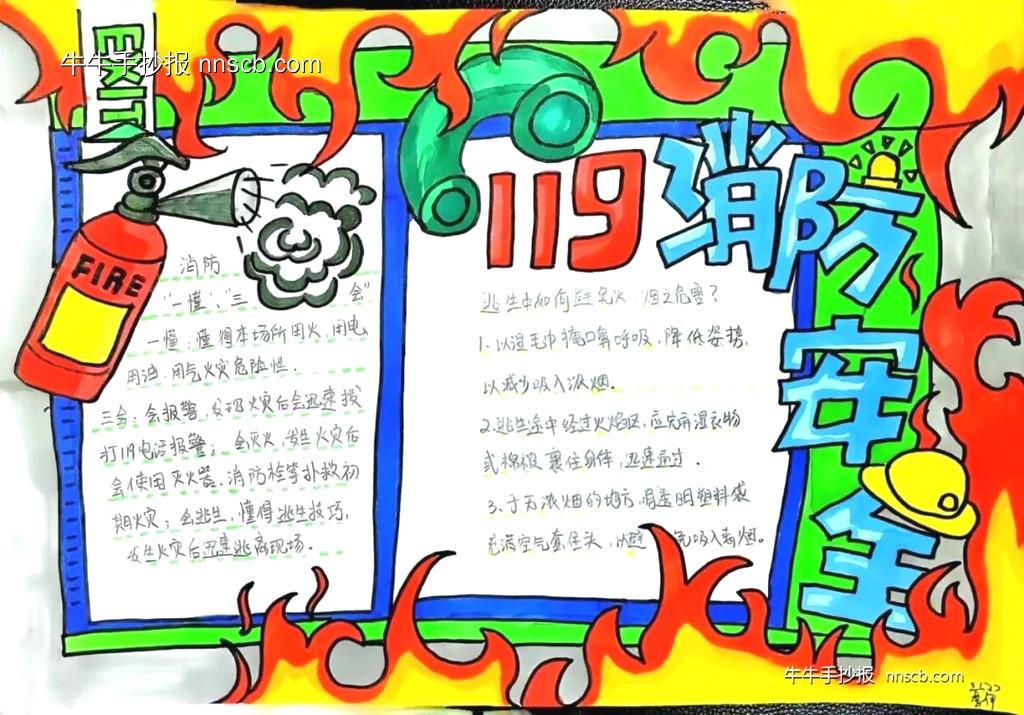 牛牛手抄报 nnscb.com
EXIT
FIRE
119消防安全
消防
"一懂"、"三会"
一懂：懂得本场所用火、用电
用油、用气火灾危险性.
三会：会报警，发现火灾后会迅速拨
打119电话报警；会灭火，发生火灾后
会使用灭火器、消防栓等扑救初
期火灾；会逃生，懂得逃生技巧,
发生火灾后迅速逃离现场.
逃生中如何避免火、烟之危害？
1、以湿毛巾掩口鼻呼吸，降低姿势,
以减少吸入浓烟.
2、逃生途中经过火焰区，应先弄湿衣物
或棉被裹住身体，迅速通过.
3、于无浓烟的地方，将透明塑料袋
充满空气套住头，以避 气吸入毒烟。
牛牛手抄报 nnscb.com